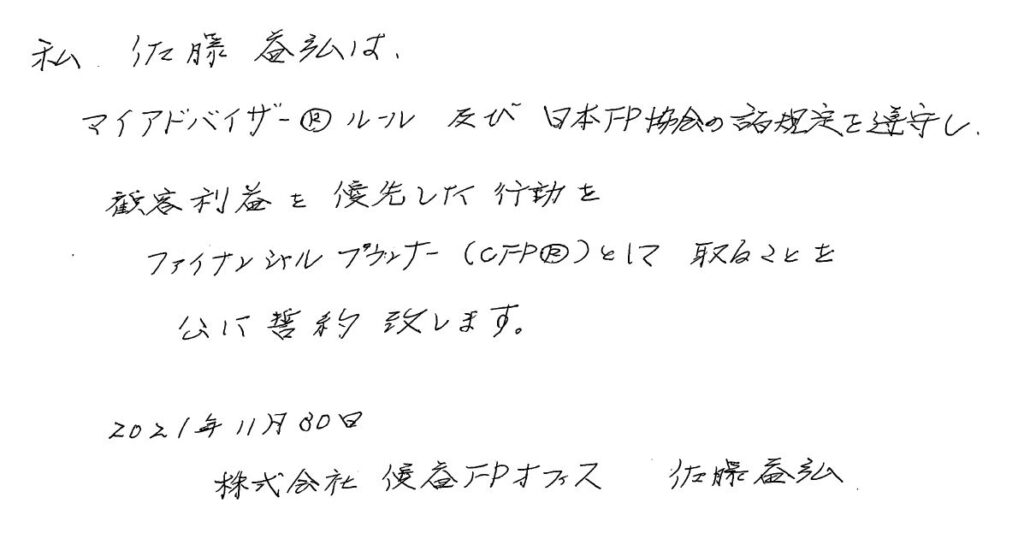 私 佐藤 益弘は、
マイアドバイザー®ルール 及び 日本FP協会の諸規定を遵守し、
顧客利益を優先した行動を
ファイナンシャルプランナー(CFP®)として 取ることを
公に誓約致します。
2021年11月30日
株式会社 優益FPオフィス 佐藤益弘